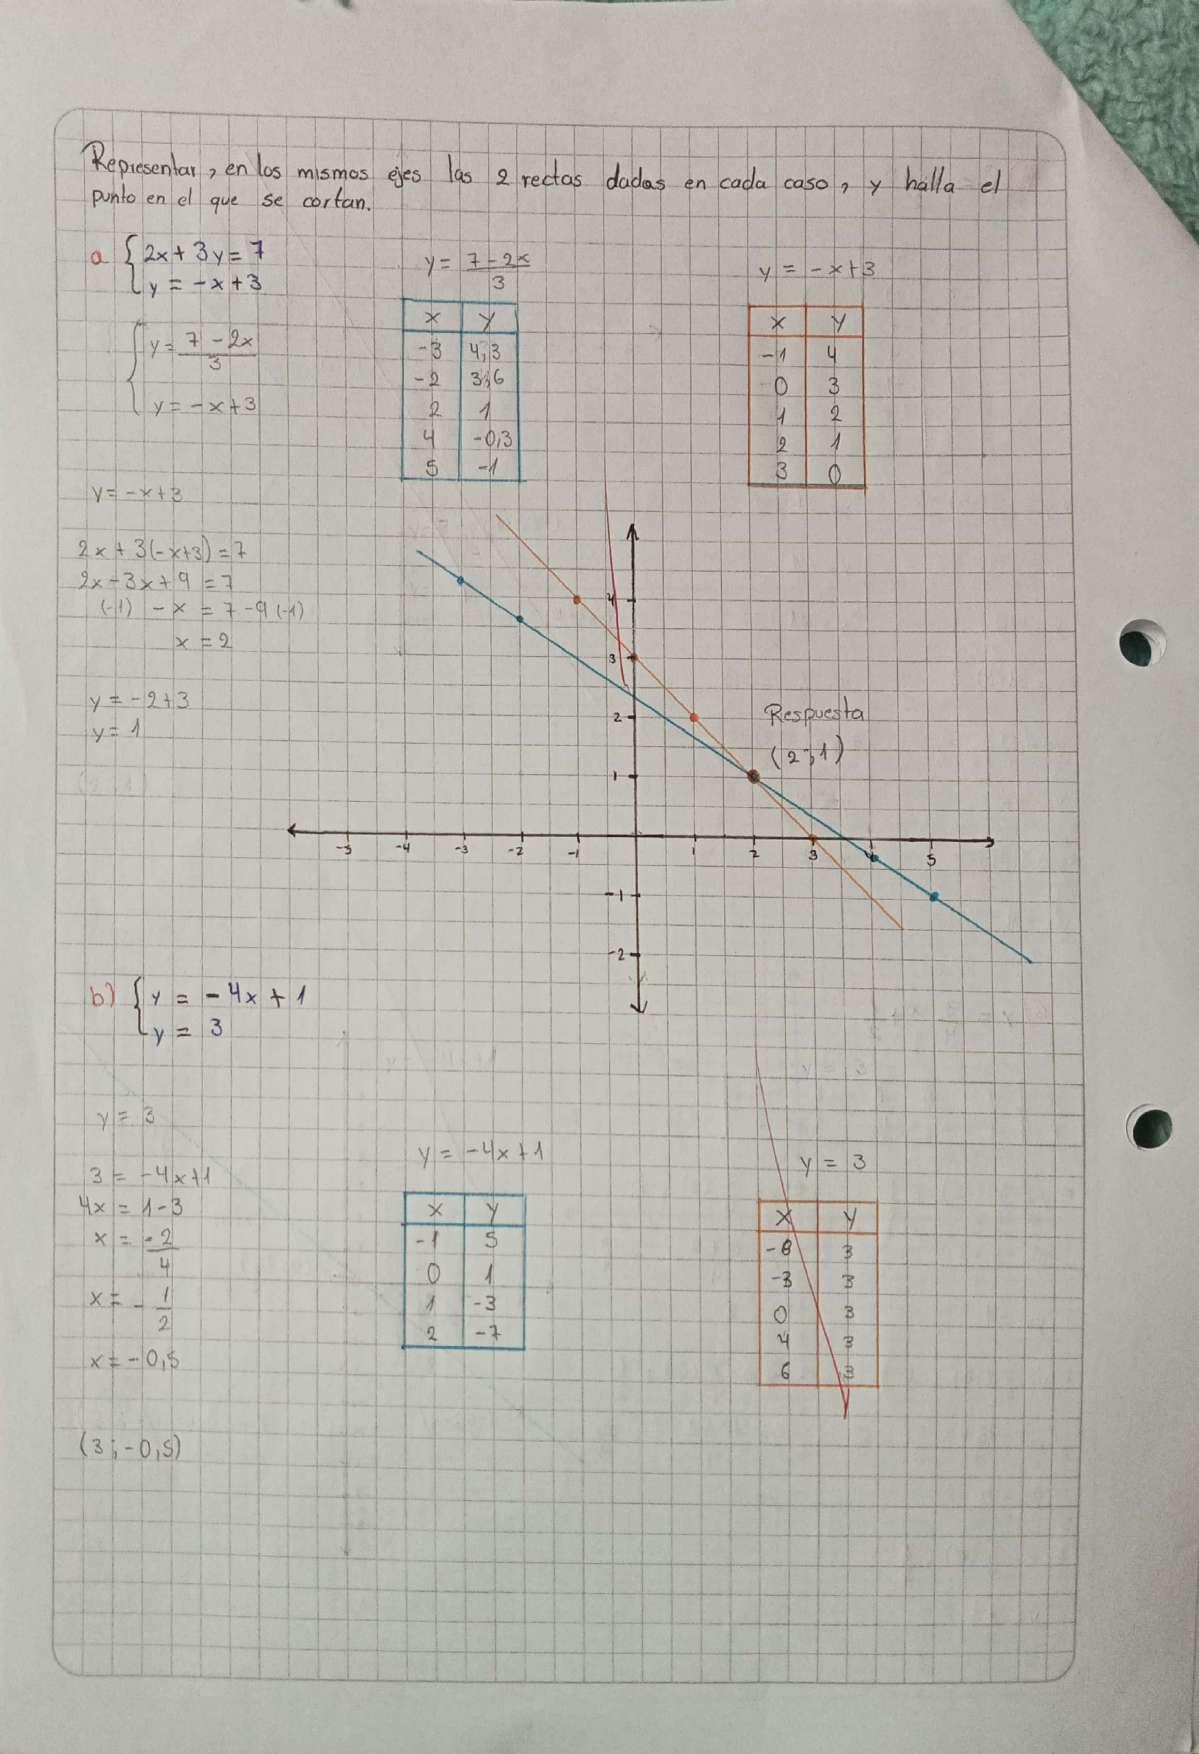 Representar, en los mismos ejes las 2 rectas dadas en cada caso, y halla el
punto en el que se cortan.
a { 2x + 3y = 7
y = -x + 3
y = 7 - 2x / 3
y = -x + 3
y = -x + 3
2x + 3(-x+3) = 7
2x - 3x + 9 = 7
(-1) -x = 7 - 9 (-1)
x = 2
y = -2 + 3
y = 1
y = 7 - 2x / 3
x y
-3 4,3
-2 3,6
2 1
4 -0,3
5 -1
y = -x + 3
x y
-1 4
0 3
1 2
2 1
3 0
4
3
2
1
-5 -4 -3 -2 -1 1 2 3 4 5
-1
-2
Respuesta
(2;1)
b) { y = -4x + 1
y = 3
y = 3
3 = -4x + 1
4x = 1 - 3
x = -2 / 4
x = - 1 / 2
x = -0,5
(3; -0,5)
y = -4x + 1
x y
-1 5
0 1
1 -3
2 -7
y = 3
x y
3
-3 3
0 3
4 3
6 3